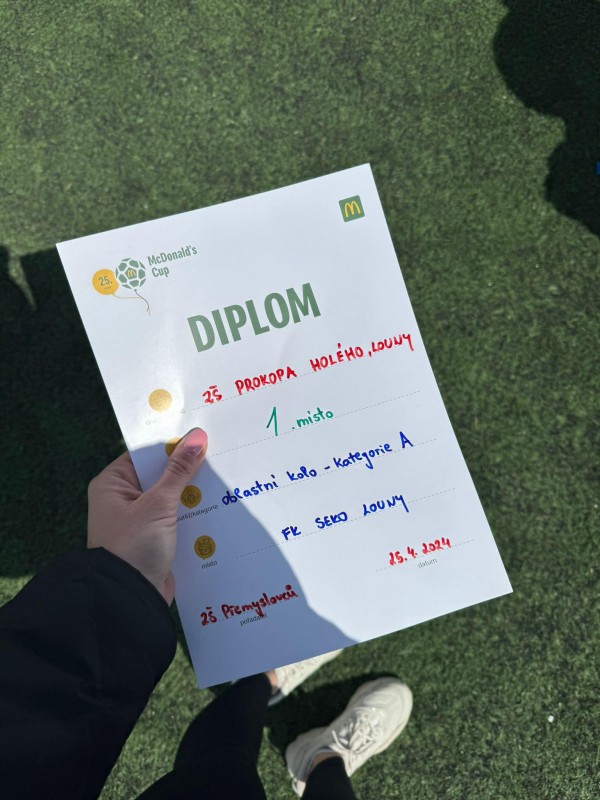 25.
McDonald's
Cup
M
DIPLOM
ZŠ PROKOPA HOLÉHO, LOUNY
1. místo
oblastní kolo - kategorie A
FK SEKO LOUNY
místo
25.4.2024
datum
ZŠ Přemyslovců